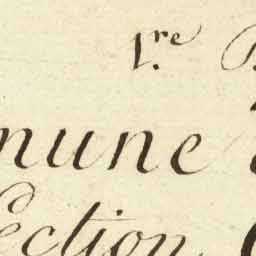 1.re
mune
Section